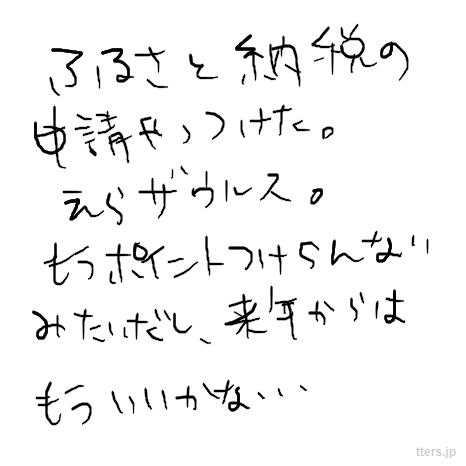 ふるさと納税の
申請やっつけた。
えらザウルス。
もうポイントつけらんない
みたいだし、来年からは
もういいかな...
tters.jp